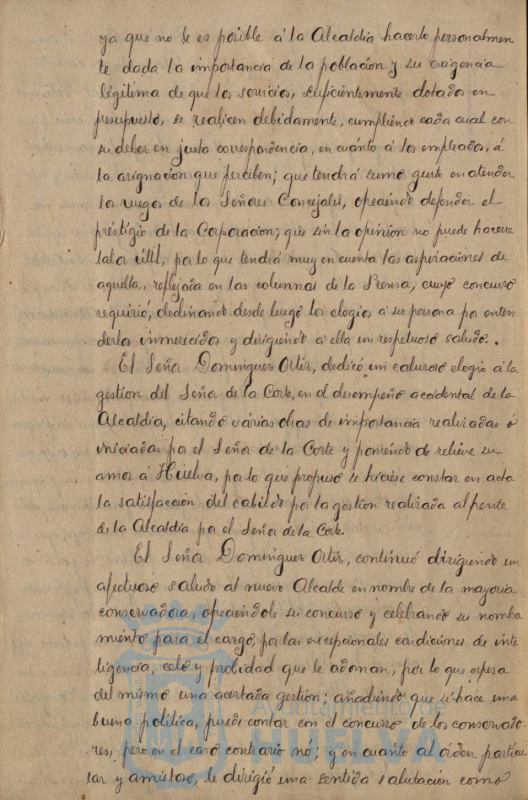 ya que no le es posible á la Alcaldia hacerlo personalmen
te dada la importancia de la poblacion y su exigencia
legitima de que los servicios, suficientemente dotados en
presupuesto, se realicen debidamente, cumpliendo cada cual con
su deber en justa correspondencia, en cuánto á los empleados, á
la asignacion que perciben; que tendrá sumo gusto en atender
los ruegos de los Señores Concejales, ofreciendo defender el
prestigio de la Corporacion; que sin la opinion no puede hacerse
labor útil, por lo que tendrá muy en cuenta las aspiraciones de
aquella, reflejada en las columnas de la Prensa, cuyo concurso
requirió, declinando desde luego los elogios a su persona por enten
derlos inmerecidos y dirigiendo a ella un respetuoso saludo.
El Señor Dominguez Ortiz, dedicó un caluroso elogio á la
gestion del Señor de la Corte, en el desempeño accidental de la
Alcaldia, citando várias obras de importancia realizadas ó
iniciadas por el Señor de la Corte y poniendo de relieve su
amor á Huelva, por lo que propuso se hiciese constar en acta
la satisfacción del cabildo por la gestion realizada al frente
de la Alcaldia por el Señor de la Corte.
El Señor Dominguez Ortiz, continuó dirigiendo un
afectuoso saludo al nuevo Alcalde en nombre de la mayoria
conservadora, ofreciéndole su concurso y celebrando su nombra
miento para el cargo, por las excepcionales condiciones de inte
ligencia, celo y probidad que le adornan, por lo que espera
del mismo una acertada gestion; añadiendo que si hace una
buena politica, puede contar con el concurso de los conservado
res, pero en el caso contrario nó; y en cuanto al órden particu
lar y amistoso, le dirigió una sentida salutación como
Ayuntamiento de
HUELVA